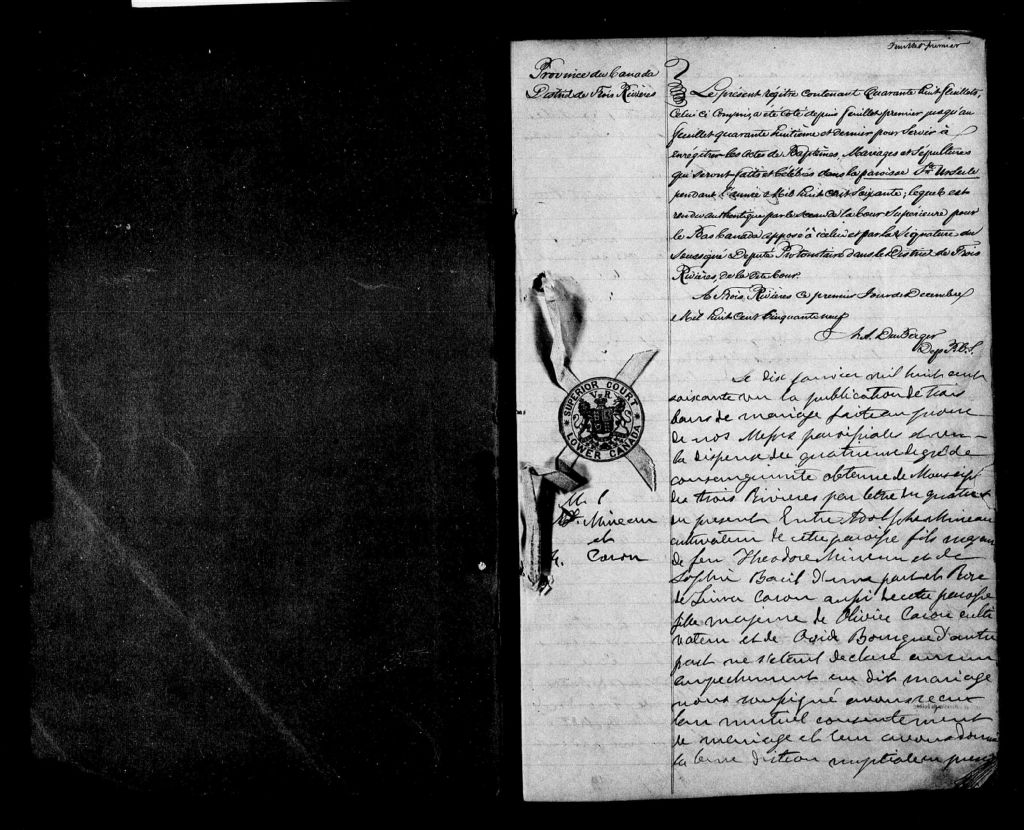 Feuillet premier
Province du Canada
District de Trois Rivières
Le présent régitre contenant Quarante huit feuillets,
Celui ci compris, a été coté depuis feuillet premier jusqu'au
feuillet quarante huitième et dernier pour servir à
enrégitrer les Actes de Baptêmes, Mariages et Sépultures
qui seront faits et célébrés dans la paroisse Ste Ursule
pendant l'année Mil huit cent Soixante; lequel est
rendu authentique par le sceau de la Cour Superieure pour
le Bas Canada apposé à icelui et par la Signature du
Soussigné Député Protonotaire dans le District de Trois
Rivières, de la dite Cour.
A Trois Rivières ce premier Jour de Decembre
Mil huit cent Cinquante neuf
Dep P.C.S.
SUPERIOR COURT
V R
LOWER CANADA
Le dix janvier mil huit cent
soixante vu la publication de trois
bans de mariage faite au prone
de nos Messes paroissiales
la dispense du quatrieme degré de
consanguinité obtenue de Monseig
des trois Rivieres par lettre du quatre
du present Entre Adolphe Mineau
cultivateur de cette paroisse fils majeur
de feu Théodore Mineau et de
Sophie d'une part et Rose
de Lima Caron aussi de cette paroisse
fille majeure de Olivier Caron culti
vateur et de Bourque d'autre
part ne s'etant declaré aucun
empechement au dit mariage
nous soussigné avons recu
leur mutuel consentement
de mariage et leur avons donné
la benediction nuptiale en prese
M. 1
Ad. Mineau
et
R. Caron